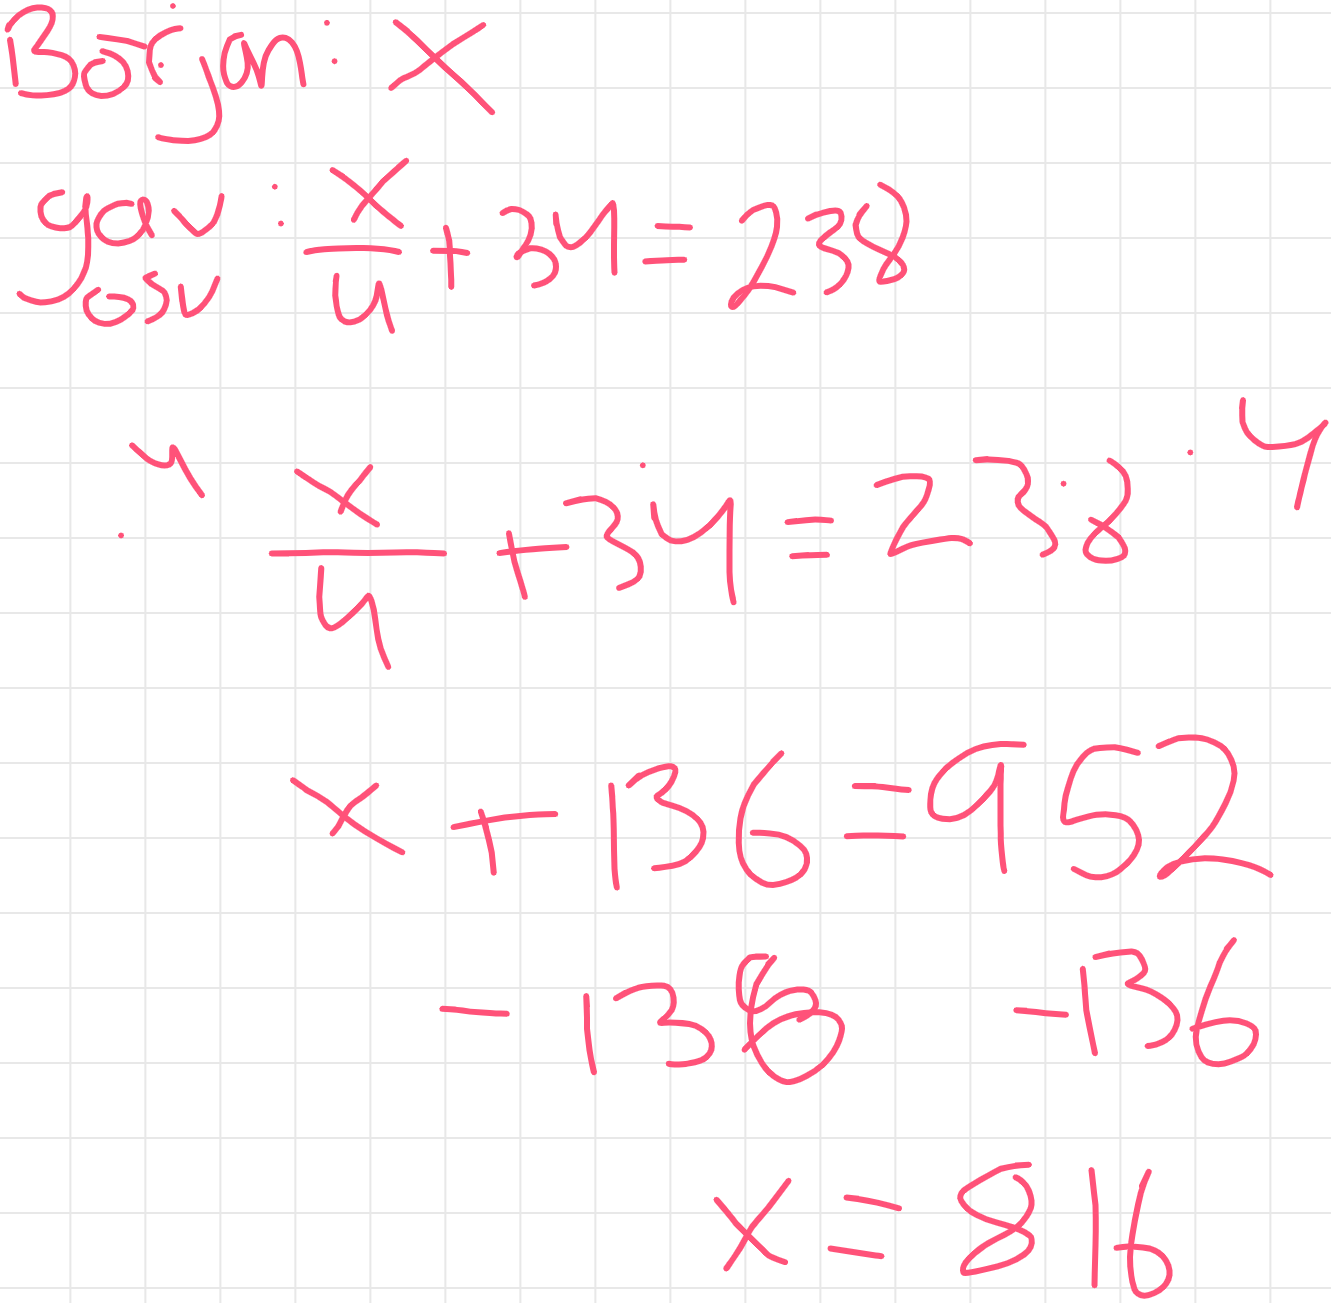 Början: x
gav osv: x/4 + 34 = 238
4 · x/4 + 34 = 238 · 4
x + 136 = 952
- 136 - 136
x = 816